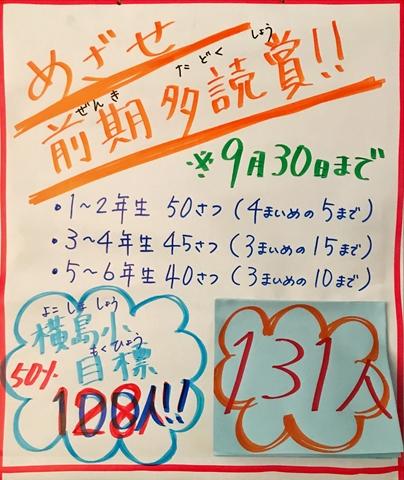 めざせ
ぜんき たどく しょう
前期多読賞!!
※9月30日まで
・1～2年生 50さつ(4まいめの5まで)
・3～4年生 45さつ(3まいめの15まで)
・5～6年生 40さつ(3まいめの10まで)
よこしましょう
横島小
もくひょう
目標
50%
人!!
131人